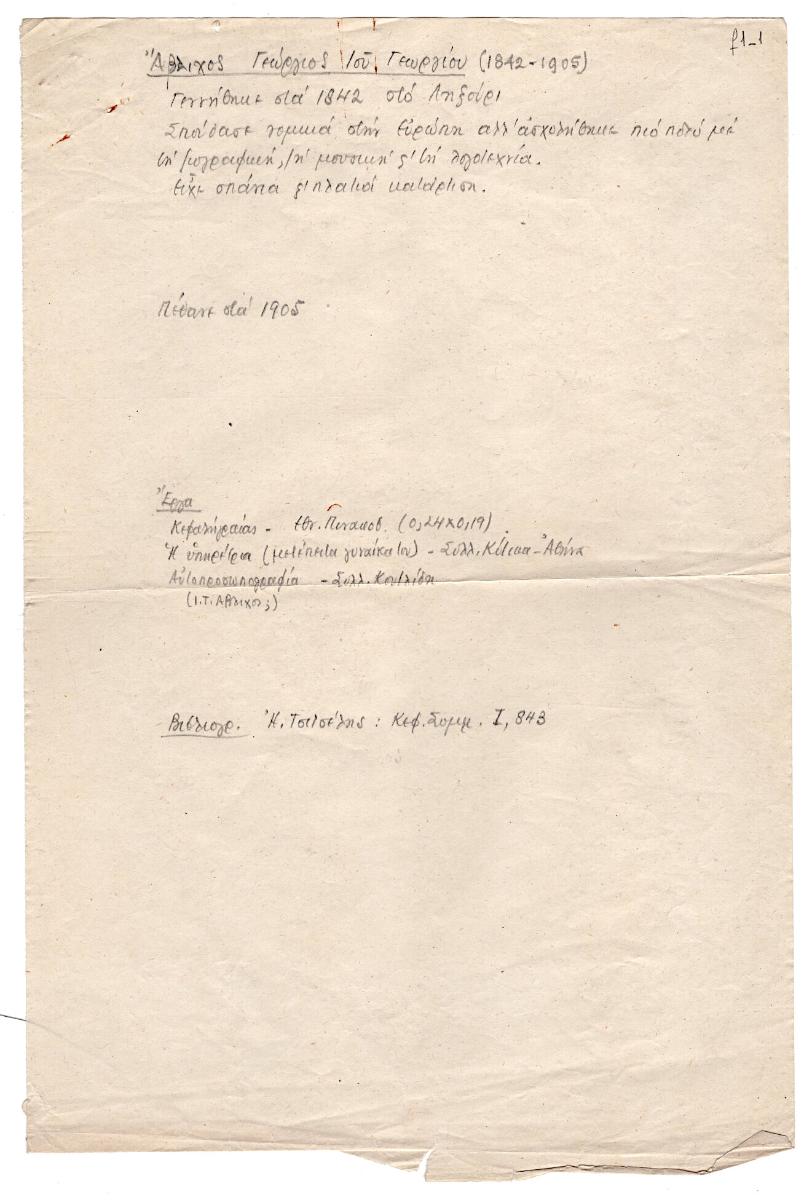 f1-1
Ἄβλιχος Γεώργιος τοῦ Γεωργίου (1842-1905)
Γεννήθηκε στά 1842 στό Ληξούρι
Σπούδασε νομικά στήν Εὐρώπη ἀλλ' ἀσχολήθηκε πιό πολύ μέ
τή ζωγραφική, τή μουσική ϛ' τή λογοτεχνία.
Εἶχε σπάνια ϛ' πλατιά κατάρτιση.
Πέθανε στά 1905
Ἔργα
Κεφαλή γραίας - Ἐθν. Πινακοθ. (0,24x0,19)
Ἡ ὑπηρέτρια (μετέπειτα γυναίκα του) - Συλλ. - Ἀθήνα
Αὐτοπροσωπογραφία - Συλλ.
(Ι.Τ. Άβλιχος;)
Βιβλιογρ. Ἠ. Τσιτσέλης: Κεφ. Συμμ. I, 843